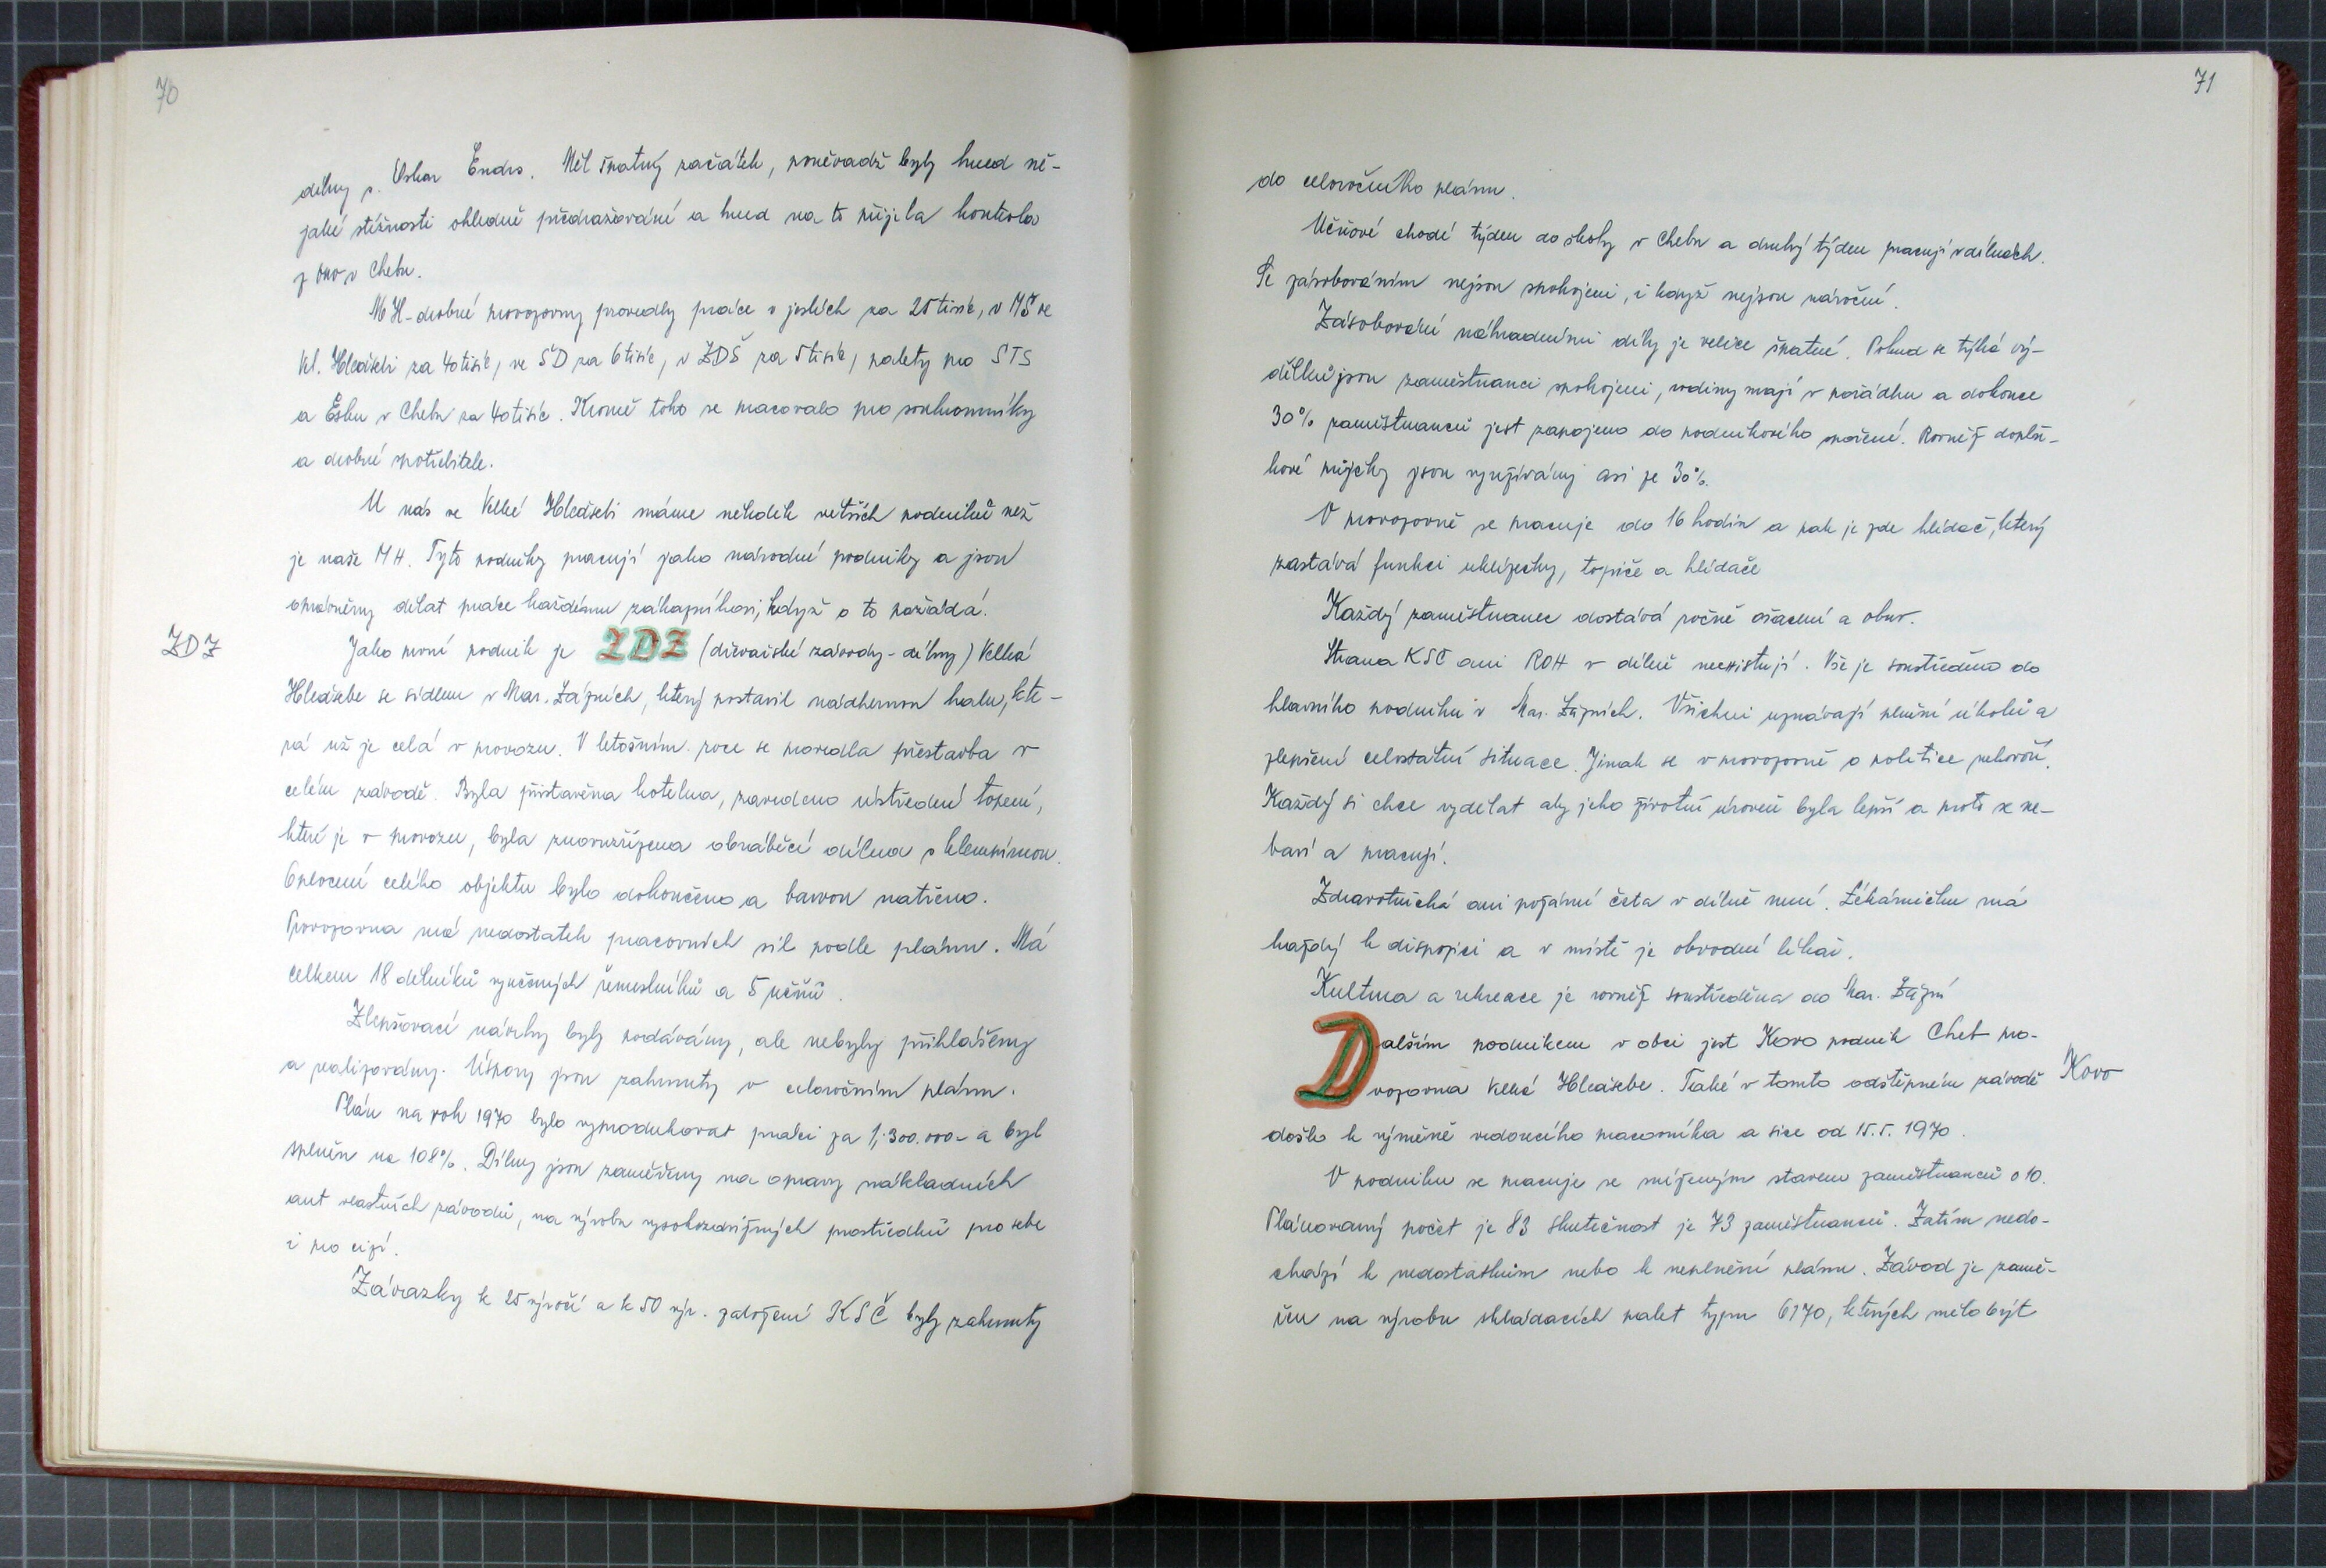 70
dílny p. Oskar Endrs. Měl špatný začátek, poněvadž byly hned ně-
jaké stížnosti ohledně předražování a hned na to přijela kontrola
z ONV v Chebu.
MH - drobné provozovny provedly práce v jeslích za 25 tisíc, v MŠ ve
Vel. Hleďsebi za 40 tisíc, ve ŠD za 6 tisíc, v ZDŠ za 5 tisíc, palety pro STS
a Esku v Chebu za 40 tisíc. Kromě toho se pracovalo pro soukromníky
a drobné spotřebitele.
U nás ve Velké Hleďsebi máme několik větších podniků než
je naše MH. Tyto podniky pracují jako národní podniky a jsou
oprávněny dělat práce každému zákazníkovi, když o to požádá.
ZDZ
Jako první podnik je ZDZ (dřevařské závody - dílny) Velká
Hleďsebe se sídlem v Mar. Lázních, který postavil nádhernou halu, kte-
rá už je celá v provozu. V letošním roce se provedla přestavba v
celém závodě. Byla přistavěna kotelna, zavedeno ústřední topení,
které je v provozu, byla znovuzřízena obráběcí dílna s klempírnou.
Oplocení celého objektu bylo dokončeno a barvou natřeno.
Provozovna má nedostatek pracovních sil podle plánu. Má
celkem 18 dělníků vyučených řemeslníků a 5 učňů.
Zlepšovací návrhy byly podávány, ale nebyly přihlášeny
a realizovány. Úspory jsou zahrnuty v celoročním plánu.
Plán na rok 1970 bylo vyprodukovat práci za 1,300.000- a byl
splněn na 108%. Dílny jsou zaměřeny na opravy nákladních
aut vlastních závodů, na výrobu vysokozdvižných prostředků pro sebe
i pro cizí.
Závazky k 25 výročí a k 50 výr. založení KSČ byly zahrnuty
71
do celoročního plánu.
Učňové chodí týden do školy v Chebu a druhý týden pracují v dílnách.
Se zásobováním nejsou spokojeni, i když nejsou nároční.
Zásobování náhradními díly je velice špatné. Pokud se týká vý-
dělků jsou zaměstnanci spokojeni, rodiny mají v pořádku a dokonce
30% zaměstnanců jest zapojeno do podnikového spoření. Rovněž doplň-
kové půjčky jsou využívány asi ze 30%.
V provozovně se pracuje do 16 hodin a pak je zde hlídač, který
zastává funkci uklízečky, topiče a hlídače
Každý zaměstnanec dostává ročně ošacení a obuv.
Strana KSČ ani ROH v dílně neexistují. Vše je soustředěno do
hlavního podniku v Mar. Lázních. Všichni uznávají plnění úkolů a
zlepšení celostátní situace. Jinak se v provozovně o politice nehovoří.
Každý si chce vydělat aby jeho životní úroveň byla lepší a proto se ne-
baví a pracují.
Zdravotnická ani požární četa v dílně není. Lékárničku má
každý k dispozici a v místě je obvodní lékař.
Kultura a rekreace je rovněž soustředěna do Mar. Lázní
Dalším podnikem v obci jest Kovo podnik Cheb pro-
vozovna Velká Hleďsebe. Také v tomto odštěpném závodě
Kovo
došlo k výměně vedoucího pracovníka a sice od 15.5. 1970.
V podniku se pracuje se sníženým stavem zaměstnanců o 10.
Plánovaný počet je 83 skutečnost je 73 zaměstnanců. Zatím nedo-
chází k nedostatkům nebo k neplnění plánu. Závod je zamě-
řen na výrobu skládacích palet typu 6170, kterých mělo být